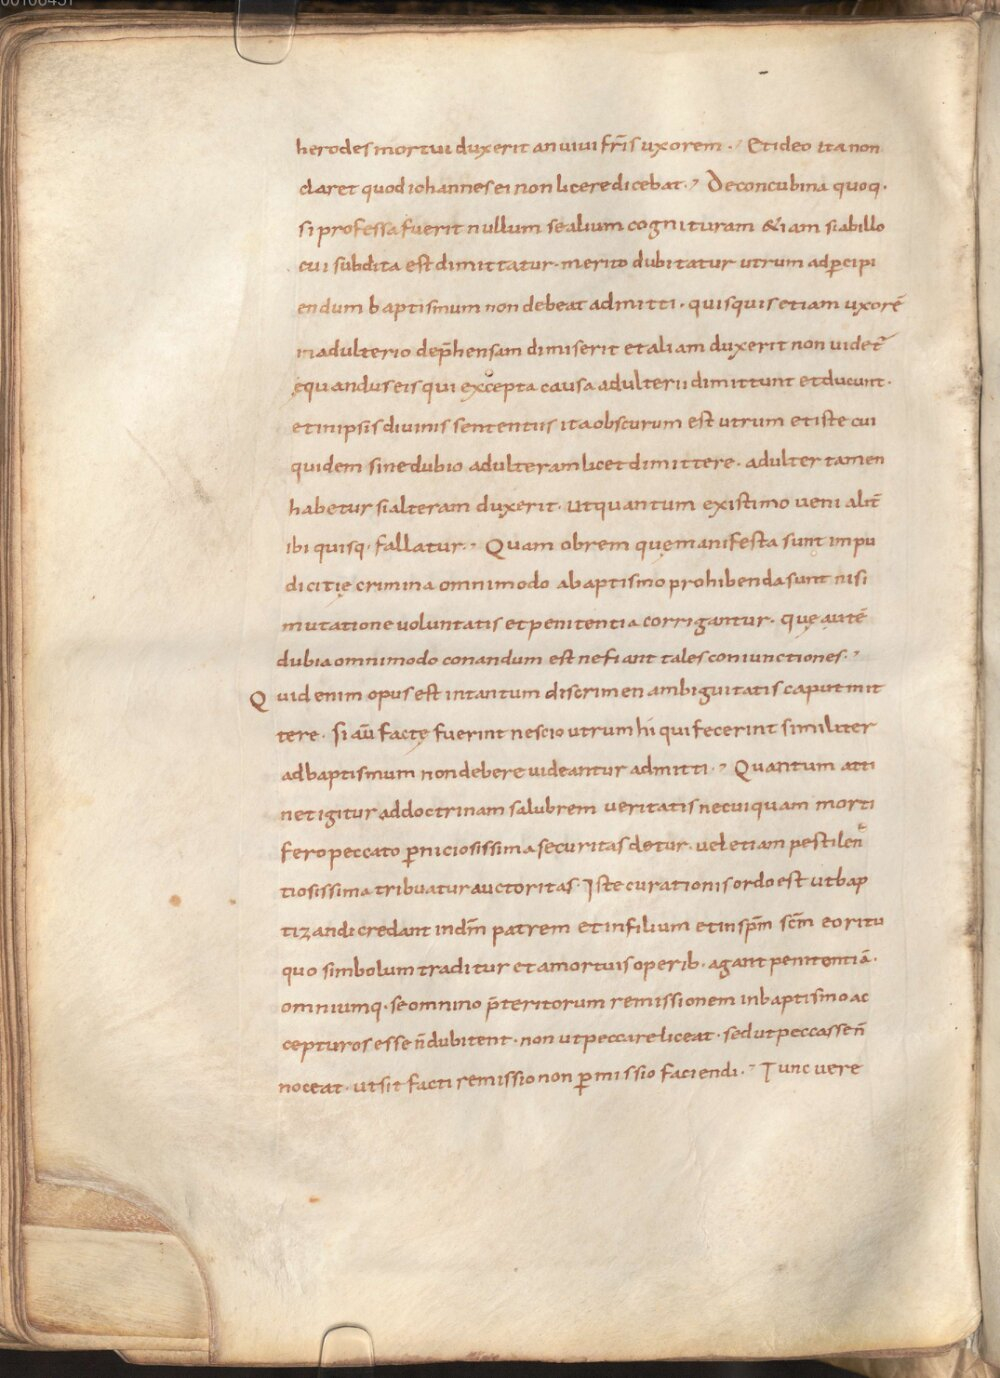 herodes mortui duxerit an vivi fr̄is uxorem. Et ideo ita non
claret quod iohannes ei non licere dicebat. De concubina quoq·
si professa fuerit nullum se alium cognituram &iam si ab illo
cui subdita est dimittatur· merito dubitatur utrum ad p̱cipi
endum baptismum non debeat admitti· quisquis etiam uxorē
in adulterio dep̄hensam dimiserit et aliam duxerit non videt̄
ęquandus eis qui excepta causa adulterii dimittunt et ducunt·
et in ipsis divinis sententiis ita obscurum est utrum et iste cui
quidem sine dubio adulteram licet dimittere· adulter tamen
habetur si alteram duxerit· ut quantum existimo veni alit̄
ibi quisq· fallatur. Quam obrem quę manifesta sunt impu
dicitię crimina omnimodo a baptismo prohibenda sunt nisi
mutatione voluntatis et penitentia corrigantur· quę autē
dubia omnimodo conandum est ne fiant tales coniunctiones.
Quid enim opus est in tantum discrimen ambiguitatis caput mit
tere· Si aū factę fuerint nescio utrum hi qui fecerint similiter
ad baptismum non debere videantur admitti. Quantum atti
net igitur ad doctrinam salubrem veritatis ne cuiquam morti
fero peccato p̱niciosissima securitas detur· vel etiam pestilen
tiosissima tribuatur auctoritas· Iste curationis ordo est ut bap
tizandi credant in dm̄ patrem et in filium et in sp̄m sc̄m eo ritu
quo simbolum traditur et a mortuis operib· agant penitentiā·
omniumq· se omnino p̄teritorum remissionem in baptismo ac
cepturos esse n̄ dubitent· non ut peccare liceat· sed ut peccasse n̄
noceat· ut sit facti remissio non p̱missio faciendi. Tunc vere